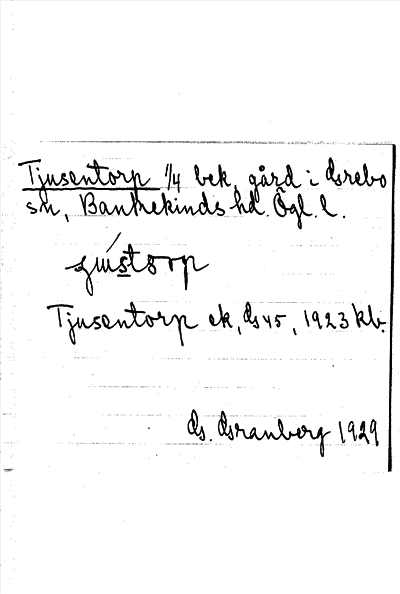 Tjusentorp 1/4 bek. gård i Grebo
sn, Bankekinds hd. Ögl. l.
Tjusentorp ek, G 45, 1923 kb.
G. Granberg 1929